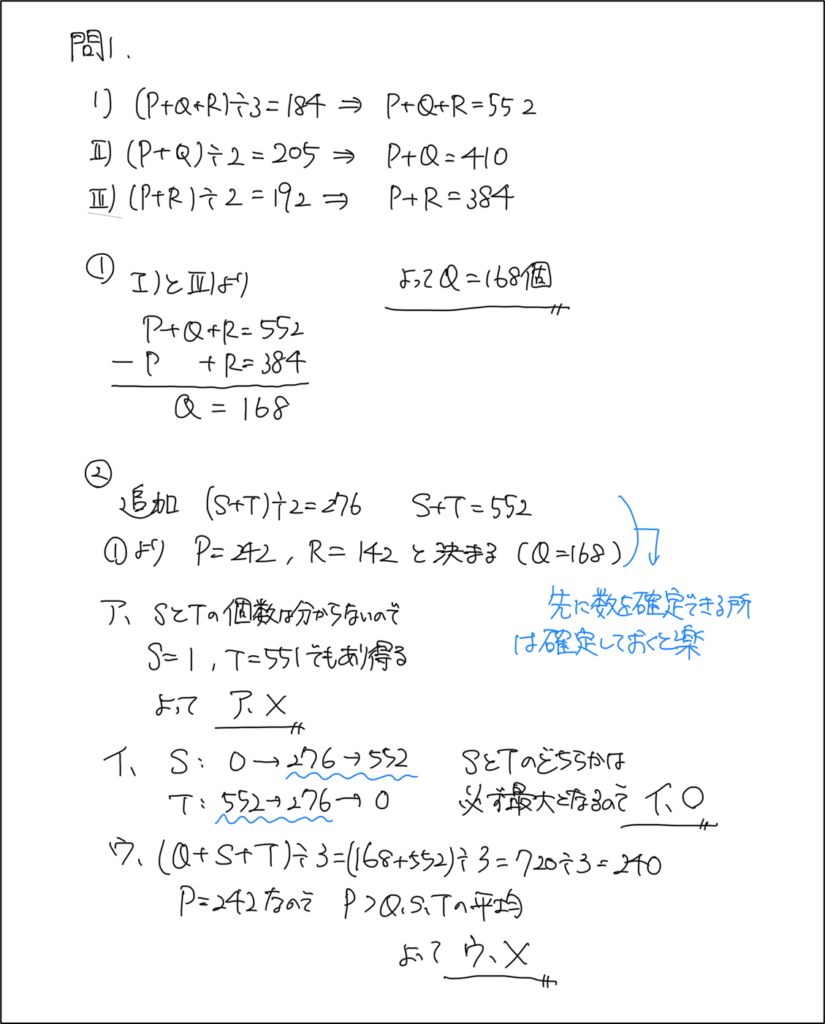 問1.
I) (P+Q+R)÷3=184 ⇒ P+Q+R=552
II) (P+Q)÷2=205 ⇒ P+Q=410
III) (P+R)÷2=192 ⇒ P+R=384
① I)とIII)より よってQ=168個
P+Q+R=552
-P +R=384
Q=168
②
追加 (S+T)÷2=276 S+T=552
①より P=242, R=142 と決まる (Q=168)
先に数を確定できる所
は確定しておくと楽
ア、SとTの個数は分からないので
S=1, T=551でもあり得る
よって ア、×
イ、S: 0→276→552 SとTのどちらかは
T: 552→276→0 必ず最大となるので イ、○
ウ、(Q+S+T)÷3=(168+552)÷3=720÷3=240
P=242なので P>Q、S、Tの平均
よって ウ、×